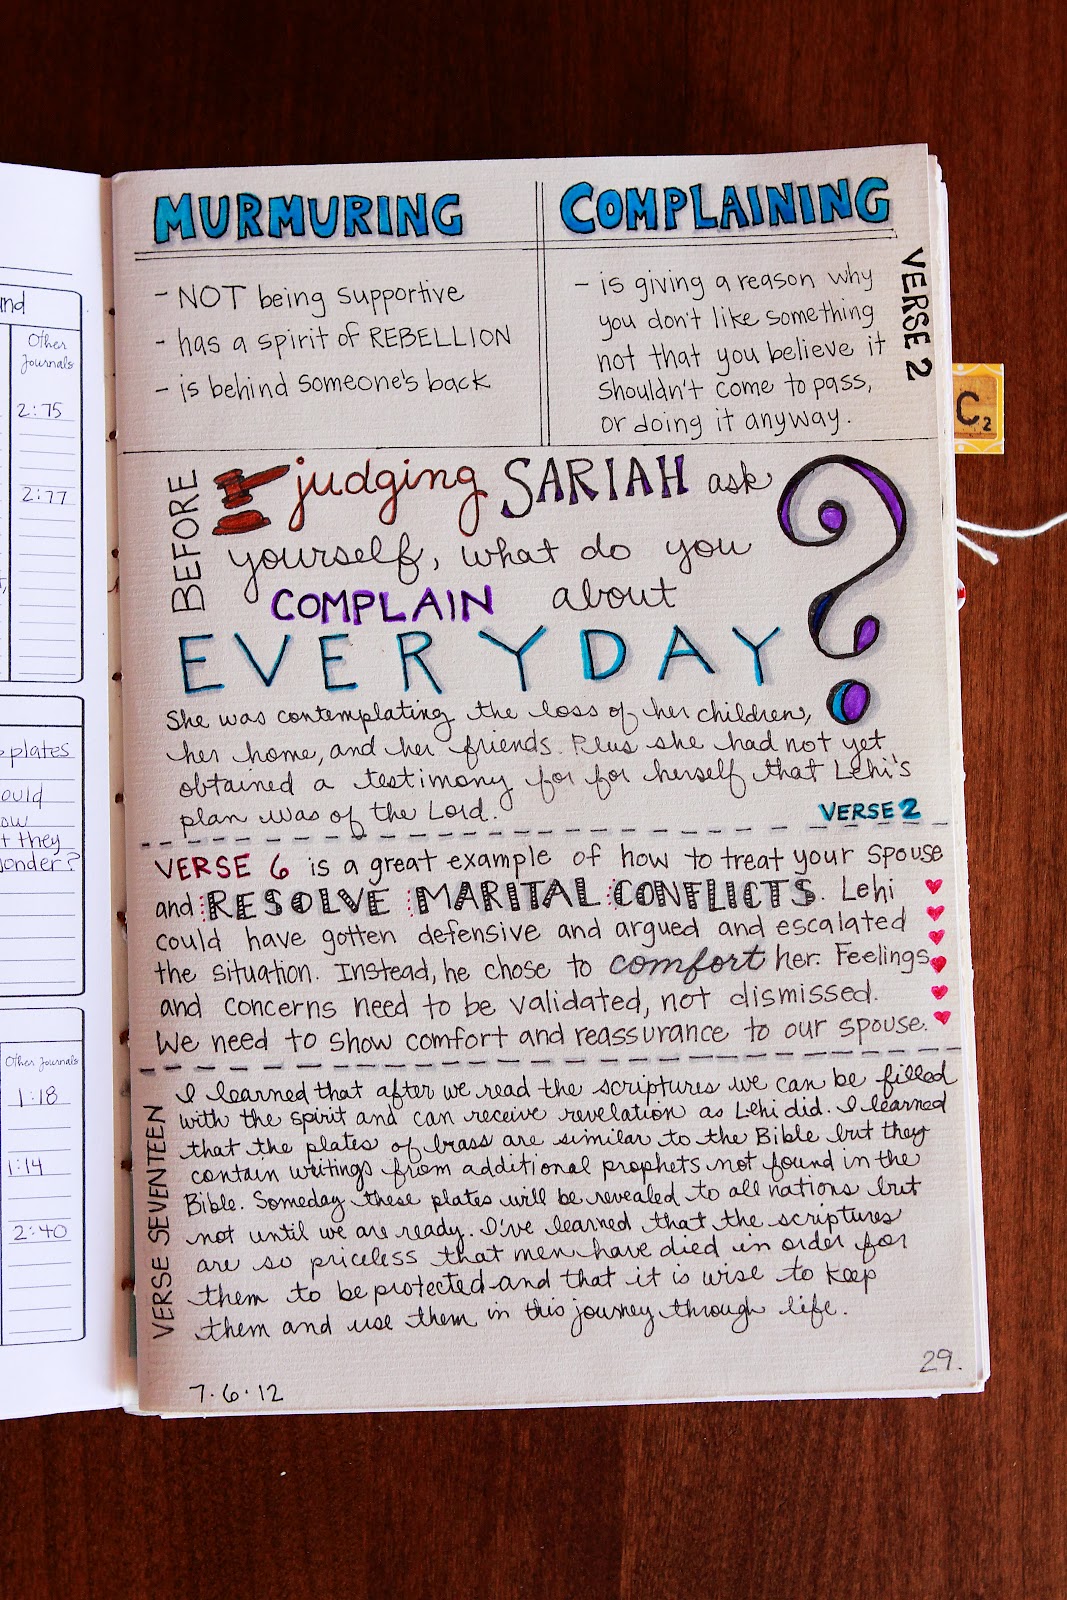 und
Other
Journals
2:75
2:77
plates
ould
ow
t they
onder?
Other Journals
1:18
1:14
2:40
MURMURING
- NOT being supportive
- has a spirit of REBELLION
- is behind someone's back
COMPLAINING
- is giving a reason why
you don't like something
not that you believe it
shouldn't come to pass,
or doing it anyway.
VERSE 2
C2
BEFORE judging SARIAH ask
yourself, what do you
COMPLAIN about
EVERYDAY?
She was contemplating the loss of her children,
her home, and her friends. Plus she had not yet
obtained a testimony for for herself that Lehi's
plan was of the Lord.
VERSE 2
VERSE 6 is a great example of how to treat your spouse
and RESOLVE MARITAL CONFLICTS. Lehi
could have gotten defensive and argued and escalated
the situation. Instead, he chose to comfort her. Feelings
and concerns need to be validated, not dismissed.
We need to show comfort and reassurance to our spouse.
VERSE SEVENTEEN
I learned that after we read the scriptures we can be filled
with the spirit and can receive revelation as Lehi did. I learned
that the plates of brass are similar to the Bible but they
contain writings from additional prophets not found in the
Bible. Someday these plates will be revealed to all nations but
not until we are ready. I've learned that the scriptures
are so priceless that men have died in order for
them to be protected and that it is wise to keep
them and use them in this journey through life.
29.
7.6.12